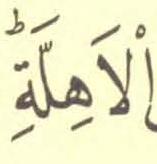 الْاَهِلَّةِؕ